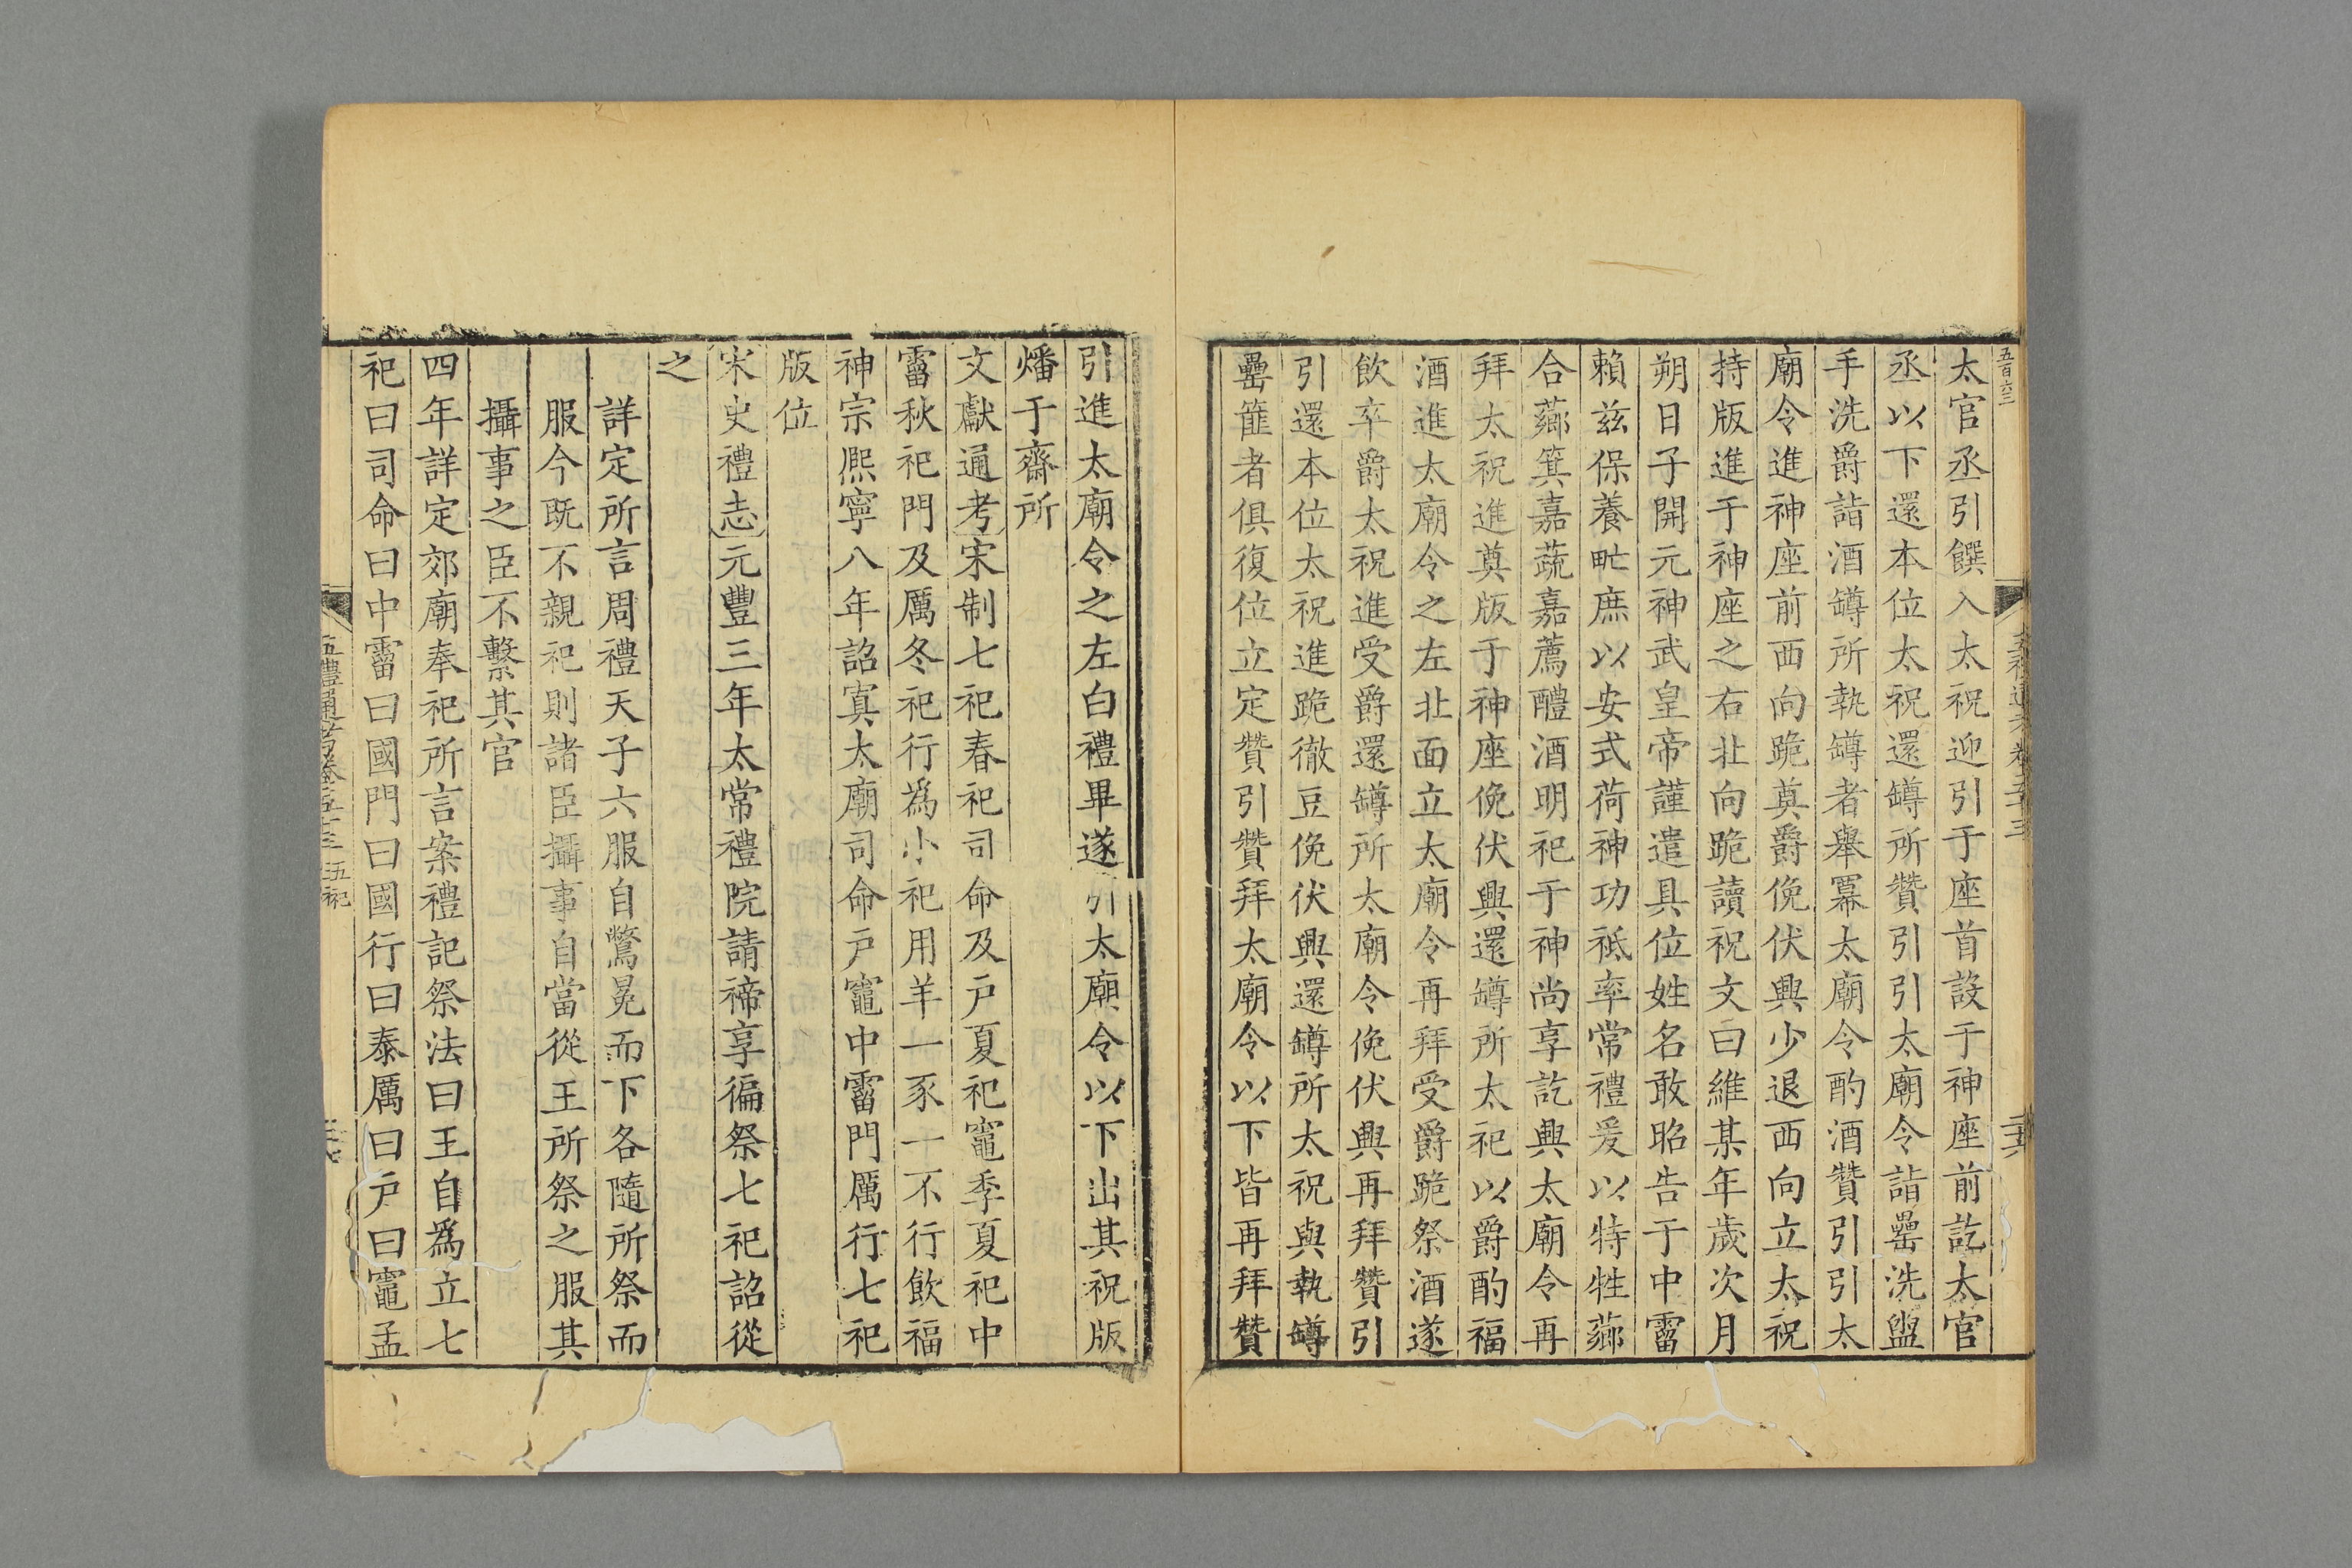 五百六三
太官丞引饌入太祝迎引于座首設于神座前訖太官
丞以下還本位太祝還罇所贊引引太廟令詣罍洗盥
手洗爵詣酒罇所執罇者舉冪太廟令酌酒贊引引太
廟令進神座前西向跪奠爵俛伏興少退西向立太祝
持版進于神座之右北向跪讀祝文曰維某年歲次月
朔日子開元神武皇帝謹遣具位姓名敢昭告于中霤
賴兹保養甿庶以安式荷神功祗率常禮爰以特牲薌
合薌箕嘉蔬嘉薦醴酒明祀于神尚享訖興太廟令再
拜太祝進奠版于神座俛伏興還罇所太祀以爵酌福
酒進太廟令之左北面立太廟令再拜受爵跪祭酒遂
飲卒爵太祝進受爵還罇所太廟令俛伏興再拜贊引
引還本位太祝進跪徹豆俛伏興還罇所太祝與執罇
罍篚者俱復位立定贊引贊拜太廟令以下皆再拜贊
引進太廟令之左白禮畢遂引太廟令以下出其祝版
燔于齋所
文獻通考宋制七祀春祀司命及戶夏祀竈季夏祀中
霤秋祀門及厲冬祀行爲小祀用羊一豕一不行飲福
神宗熙寧八年詔寘太廟司命戶竈中霤門厲行七祀
版位
宋史禮志元豐三年太常禮院請禘享徧祭七祀詔從
之
詳定所言周禮天子六服自鷩冕而下各隨所祭而
服今既不親祀則諸臣攝事自當從王所祭之服其
攝事之臣不繫其官
四年詳定郊廟奉祀所言案禮記祭法曰王自爲立七
祀曰司命曰中霤曰國門曰國行曰泰厲曰戶曰竈孟
五禮通考卷五十三 五祀